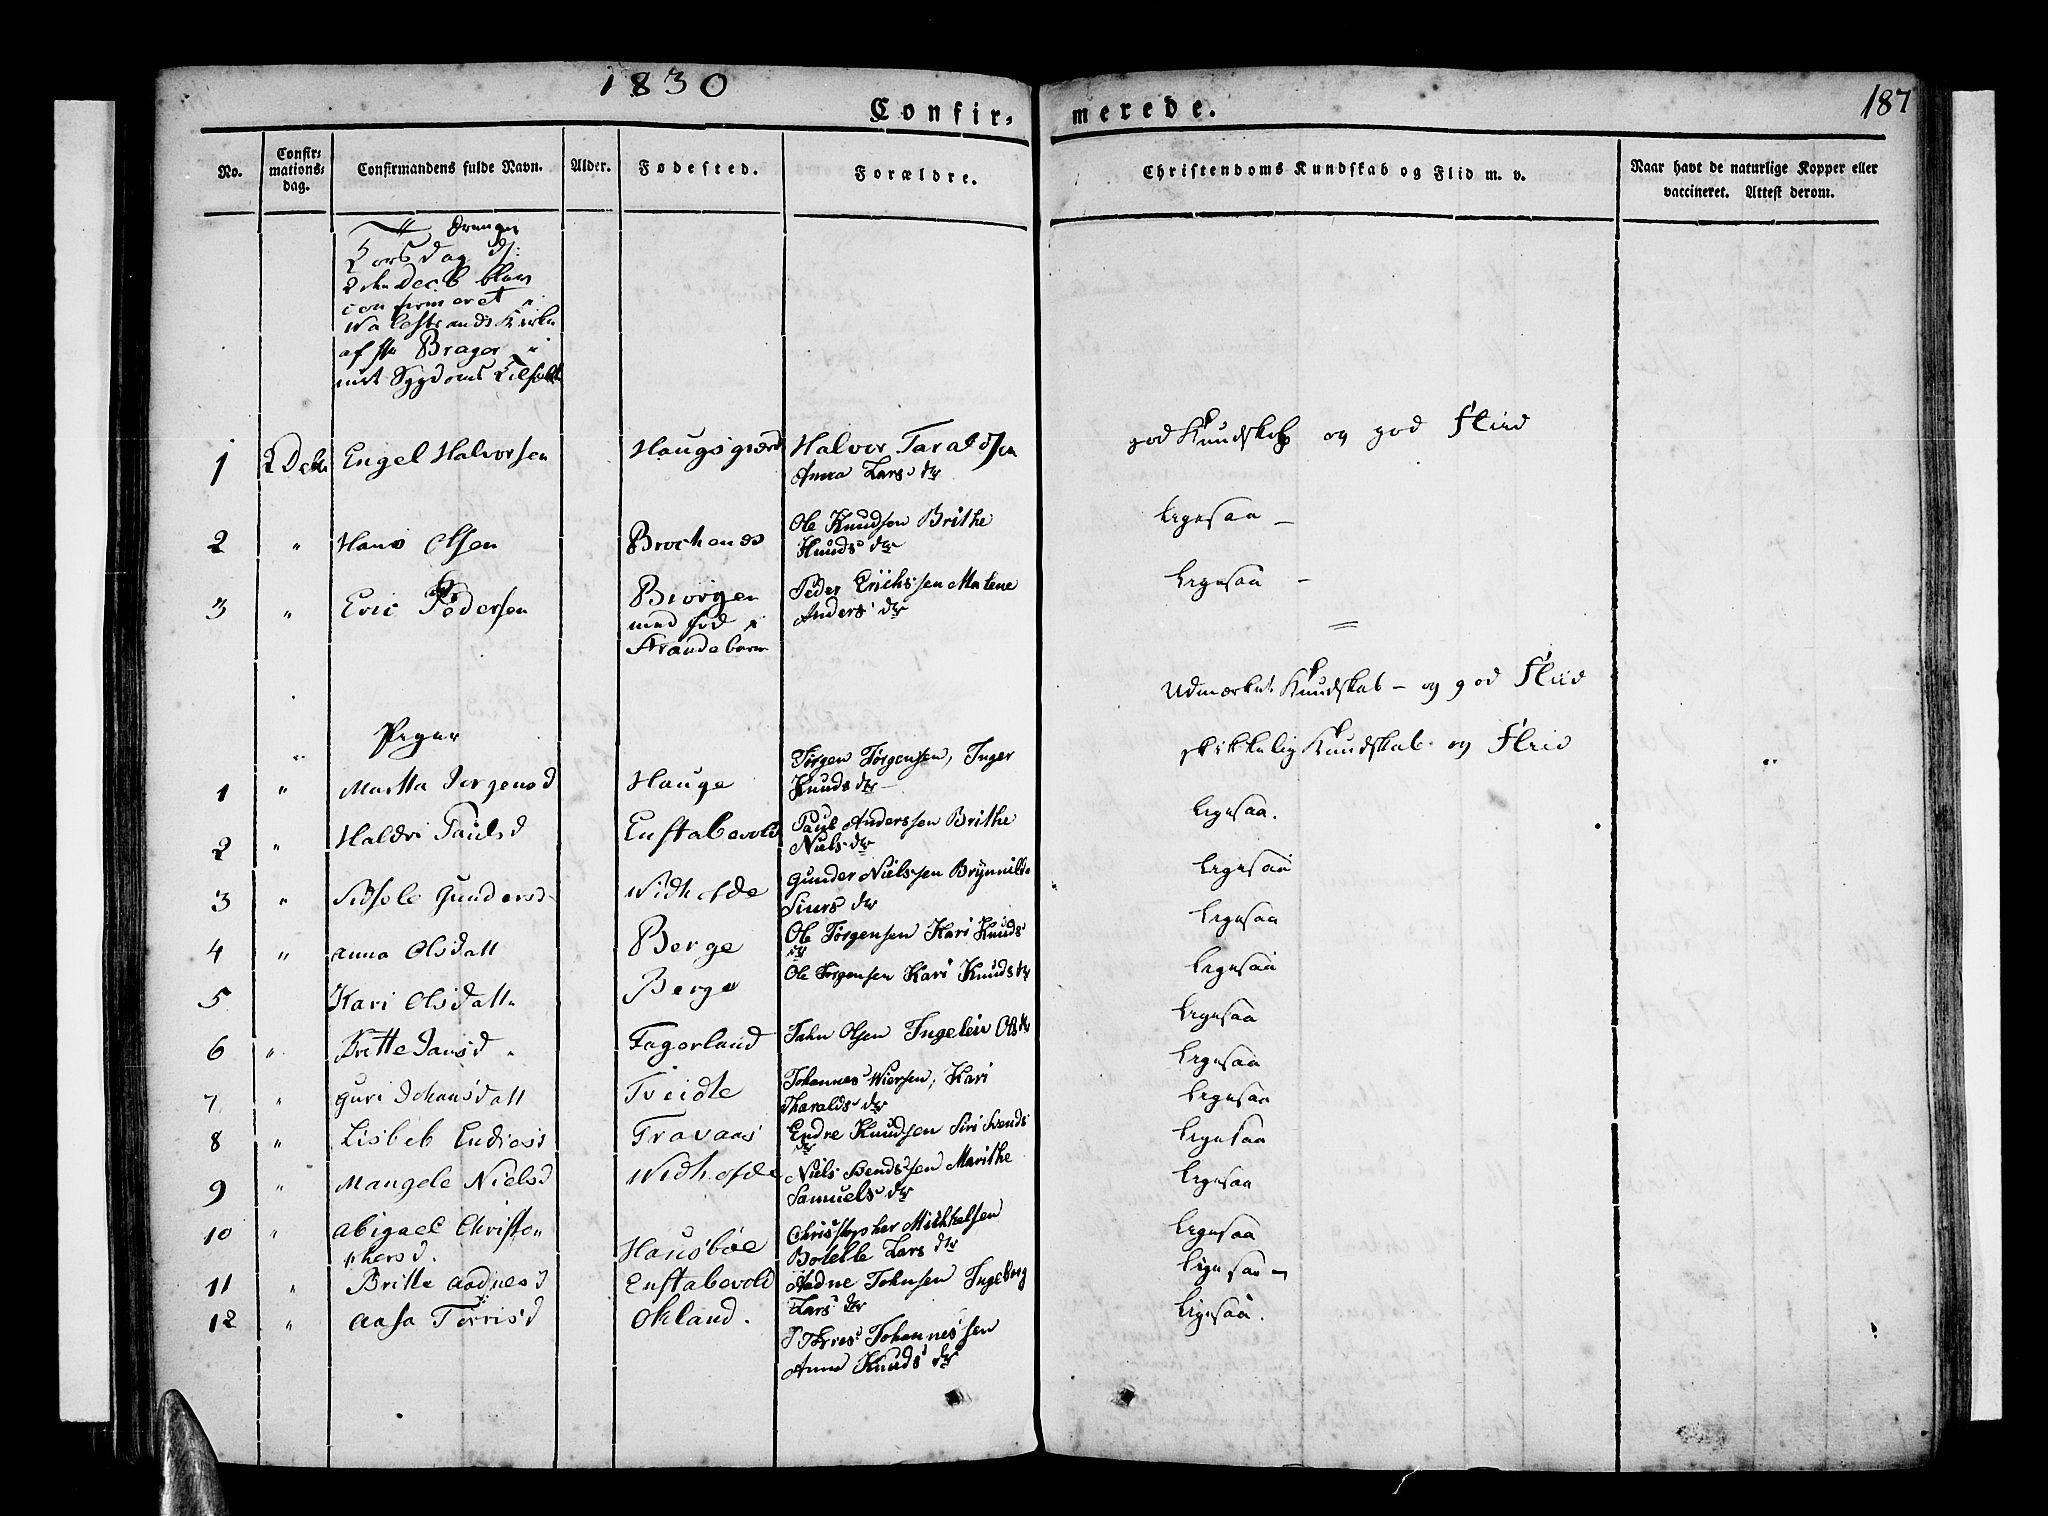 1830
187
Confir- merede.
No.
Confir-
mations-
dag.
Confirmandens fulde Navn.
Alder.
Fødested.
Forældre.
Christendoms Kundskab og Flid m. v.
Naar havt de naturlige Kopper eller
vaccineret. Attest derom.
Drenge
Torsdag d:
2den Decb blev
confirmeret i
Walestrands Kirke
af Hr Brager i
mit Sygdoms Tilfælde
1 2 Decb Engel Halvorsen Haugsgierd Halvor Taraldsen
Anna Lars' dtr
god Kundskab og god Fliid
2 " Hans Olsen Brochenæs Ole Knudsen Brithe
Knuds dtr
Ligesaa –
3 " Eric Pedersen Biorgen Peder Erichssen Malene
med fød i Anders' dtr
Strandebarm
Ligesaa –
Piger
Udmærket Kundskab – og god Fliid
1 " Martha Jorgensd Hauge Jørgen Jørgensen, Inger
Knuds dtr –
skikkelig Kundskab og Fliid
2 " Haldri Paulsd Enstabevold Paul Anderssen Brithe
Niels dtr
Ligesaa.
3 " Sidsele Gundersd Widhofde Gunder Nielssen Brynnild
Siurs dtr
Ligesaa
4 " Anna Olsdatt Berge Ole Jørgensen Kari Knuds
dtr
Ligesaa
5 Kari Olsdatt. Berge Ole Jørgensen Kari Knuds dtr
Ligesaa
6 " Britte Jansd Fagerland Jahn Olsen Ingeleiv Ols dtr
Ligesaa
7 " Guri Johansdatt Tveidte Johannes Wiersen, Kari
Tharalds dtr
Ligesaa
8 " Lisbeb Endresd Travaas Endre Knudsen Siri Svends
dtr
Ligesaa
9 " Mangele Nielsd Widhofde Niels Bendssen Marithe
Samuels dtr
Ligesaa
10 " Abigael Christo-
phersd. Hausbøe Christopher Mickkelsen
Botelle Lars dtr
Ligesaa
11 " Britte Aadnesd Enstabevold Aadne Johnsen Ingeborg
Lars' dtr
Ligesaa
12 " Aasa Torrisd Okland. Torres Johannessen
Anna Knuds' dtr
Ligesaa.